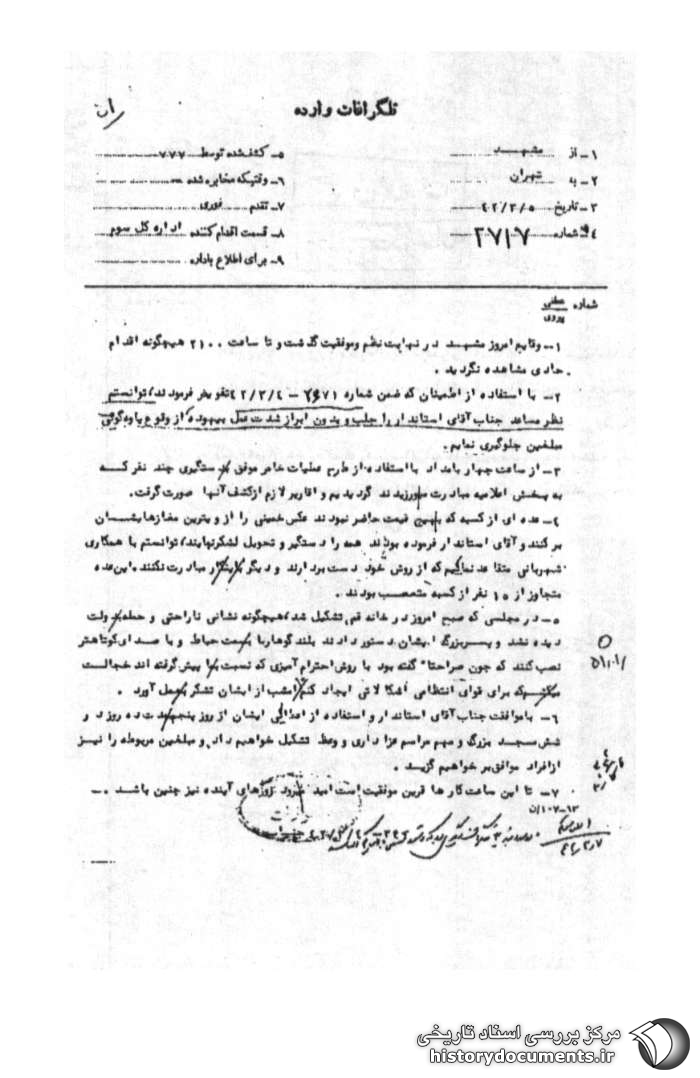 تلگرافات وارده
۱ـ از مشهد
۲ـ به تهران
۳ـ تاریخ ۴۲/۳/۵
۴ـ شماره ۲۷۱۷
۵ـ کشف‌شده توسط ۷۷۷
۶ـ وقتیکه مخابره شده ـــ
۷ـ تقدم فوری
۸ـ قسمت اقدام کننده اداره کل سوم
۹ـ برای اطلاع باداره
شماره عطفی
پیروی
۱ـ وقایع امروز مشهد در نهایت نظم وموفقیت گذشت و تا ساعت ۲۱۰۰ هیچگونه اقدام
حادی مشاهده نگردید .
۲ـ با استفاده از اطمینان که ضمن شماره ۲۶۷۱ – ۴۲/۳/۴ تفویض فرمودند، توانستم
نظر مساعد جناب آقای استاندار را جلب و بدون ابراز شدت عمل بیهوده از وقوع یاوه‌گوئی
مبلغین جلوگیری نمایم .
۳ـ از ساعت چهار بامداد با استفاده از طرح عملیات خاص موفق بدستگیری چند نفر که
به پخش اعلامیه مبادرت میورزیدند گردیدیم و اقاریر لازم ازکشف آنها صورت گرفت.
۴ـ عده ای از کسبه که بهیچ قیمت حاضر نبودند عکس خمینی را از ویترین مغازهایشان
بر کنند و آقای استاندار فرموده بودند همه را دستگیر و تحویل لشکرنمایند، توانستم با همکاری
شهربانی متقاعد نمائیم که از روش خود دست بردارند و دیگر باینکار مبادرت نکنند، این عده
متجاوز از ۱۵ نفر از کسبه متعصب بودند .
۵ـ در مجلسی که صبح امروز در خانه قمی تشکیل شد، هیچگونه نشانی ناراحتی و حمله بدولت
دیده نشد و پسربزرگ ایشان دستور دادند بلندگوها را بسمت حیاط و با صدای کوتاهتر
نصب کنند که چون صراحتا" گفته بود با روش احترام آمیزی که نسبت بما پیش گرفته اند خجالت
میکشم که برای قوای انتظامی اشکالاتی ایجاد کنم، امشب از ایشان تشکر بعمل آورد .
۶ـ باموافقت جناب آقای استاندار و استفاده از ایشان از روز پنجم بمدت ده روز در
شش مسجد بزرگ و مهم مراسم عزاداری و وعظ تشکیل خواهیم داد و مبلغین مربوطه را نیز
از افراد موافق بر خواهیم گزید .
۷ـ تا این ساعت کار ها قرین موفقیت است امید میرود روزهای آینده نیز چنین باشد .ـ
۶۳–۱۰۷/ن
۴۲/۳/۷
مرکز بررسی اسناد تاریخی
historydocuments.ir